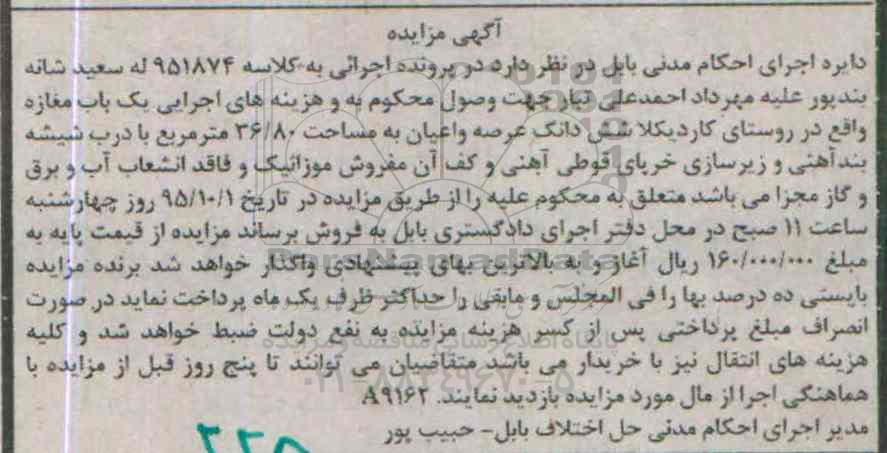 آگهی مزایده
دایره اجرای احکام مدنی بابل در نظر دارد در پرونده اجرائی به کلاسه ۹۵۱۸۷۴ له سعید شانه
بندپور علیه مهرداد احمدعلی تبار جهت وصول محکوم به و هزینه های اجرایی یک باب مغازه
واقع در روستای کاردیکلا شش دانگ عرصه واعیان به مساحت ۳۶/۸۰ مترمربع با درب شیشه
بندآهنی و زیرسازی خرپای قوطی آهنی و کف آن مفروش موزائیک و فاقد انشعاب آب و برق
و گاز مجزا می باشد متعلق به محکوم علیه را از طریق مزایده در تاریخ ۹۵/۱۰/۱ روز چهارشنبه
ساعت ۱۱ صبح در محل دفتر اجرای دادگستری بابل به فروش برساند مزایده از قیمت پایه به
مبلغ ۱۶۰/۰۰۰/۰۰۰ ریال آغاز و به بالاترین بهای پیشنهادی واگذار خواهد شد برنده مزایده
بایستی ده درصد بها را فی المجلس و مابقی را حداکثر ظرف یک ماه پرداخت نماید در صورت
انصراف مبلغ پرداختی پس از کسر هزینه مزایده به نفع دولت ضبط خواهد شد و کلیه
هزینه های انتقال نیز با خریدار می باشد متقاضیان می توانند تا پنج روز قبل از مزایده با
هماهنگی اجرا از مال مورد مزایده بازدید نمایند. A۹۱۶۲
مدیر اجرای احکام مدنی حل اختلاف بابل- حبیب پور
ParsNamadData
پایگاه اطلاع رسانی مناقصه و مزایده
۰۲۱-۸۸۳۴۹۶۷۰-۵